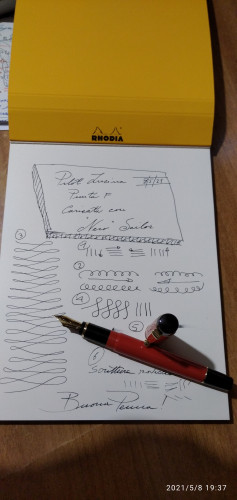 RHODIA
Pilot Lucina 8/5/21
Punta F
Caricata con
"Nero" Sailor
1
2
3
4
5
6
Scrittura normale
Buona Penna!
2021/5/8 19:37